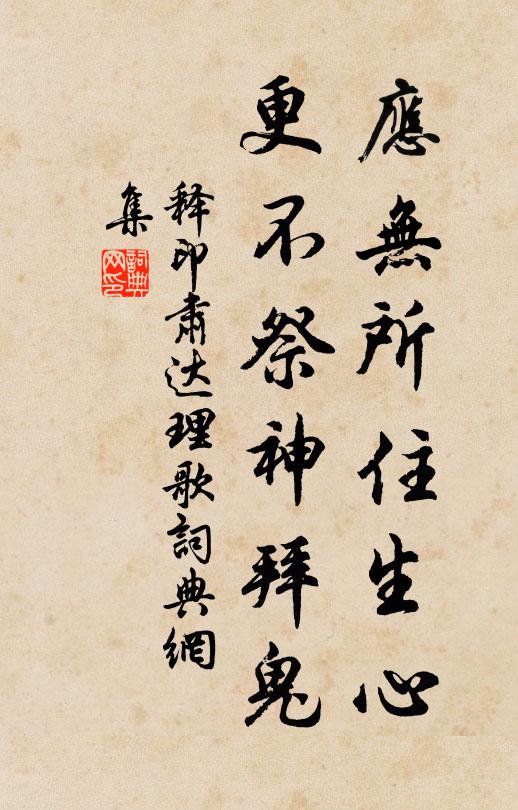 應無所住生心
更不祭神拜鬼
释印肃达理歌詞典網
集
詞典網印